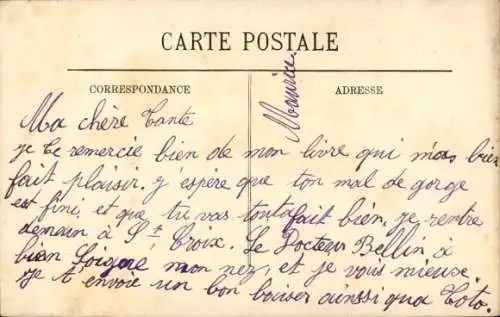 CARTE POSTALE
CORRESPONDANCE
ADRESSE
Maurice.
Ma chère Tante
je te remercie bien de mon livre qui m'as bien
fait plaisir. j'espère que ton mal de gorge
est fini, et que tu vas toutafait bien, je rentre
demain à St Croix. Le Docteur Bellin à
bien soigne mon nez, et je vous mieux.
Je t'envoie un bon baiser ainssi qua Toto.